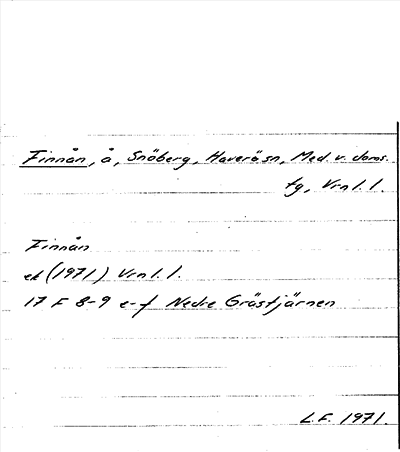 Finnån, å, Snöberg, Haverö sn, Med. v. doms.
tg, Vrnl. l.
Finnån
ek (1971) Vrnl. l.
17 F 8-9 e-f Nedre Gråstjärnen
L.F. 1971.